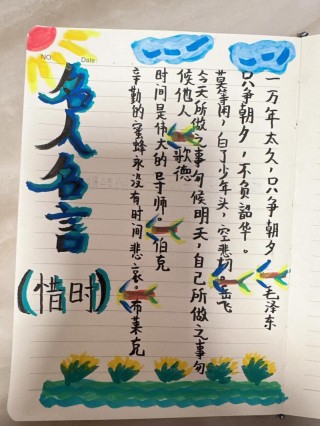 NO.
Date
名人名言
(惜时)
一万年太久,只争朝夕。毛泽东
只争朝夕,不负韶华。
莫等闲,白了少年头,空悲切。岳飞
今天所做之事勿候明天,自己所做之事勿
候他人。歌德
时间是伟大的导师。伯克
辛勤的蜜蜂永没有时间悲哀。布莱克